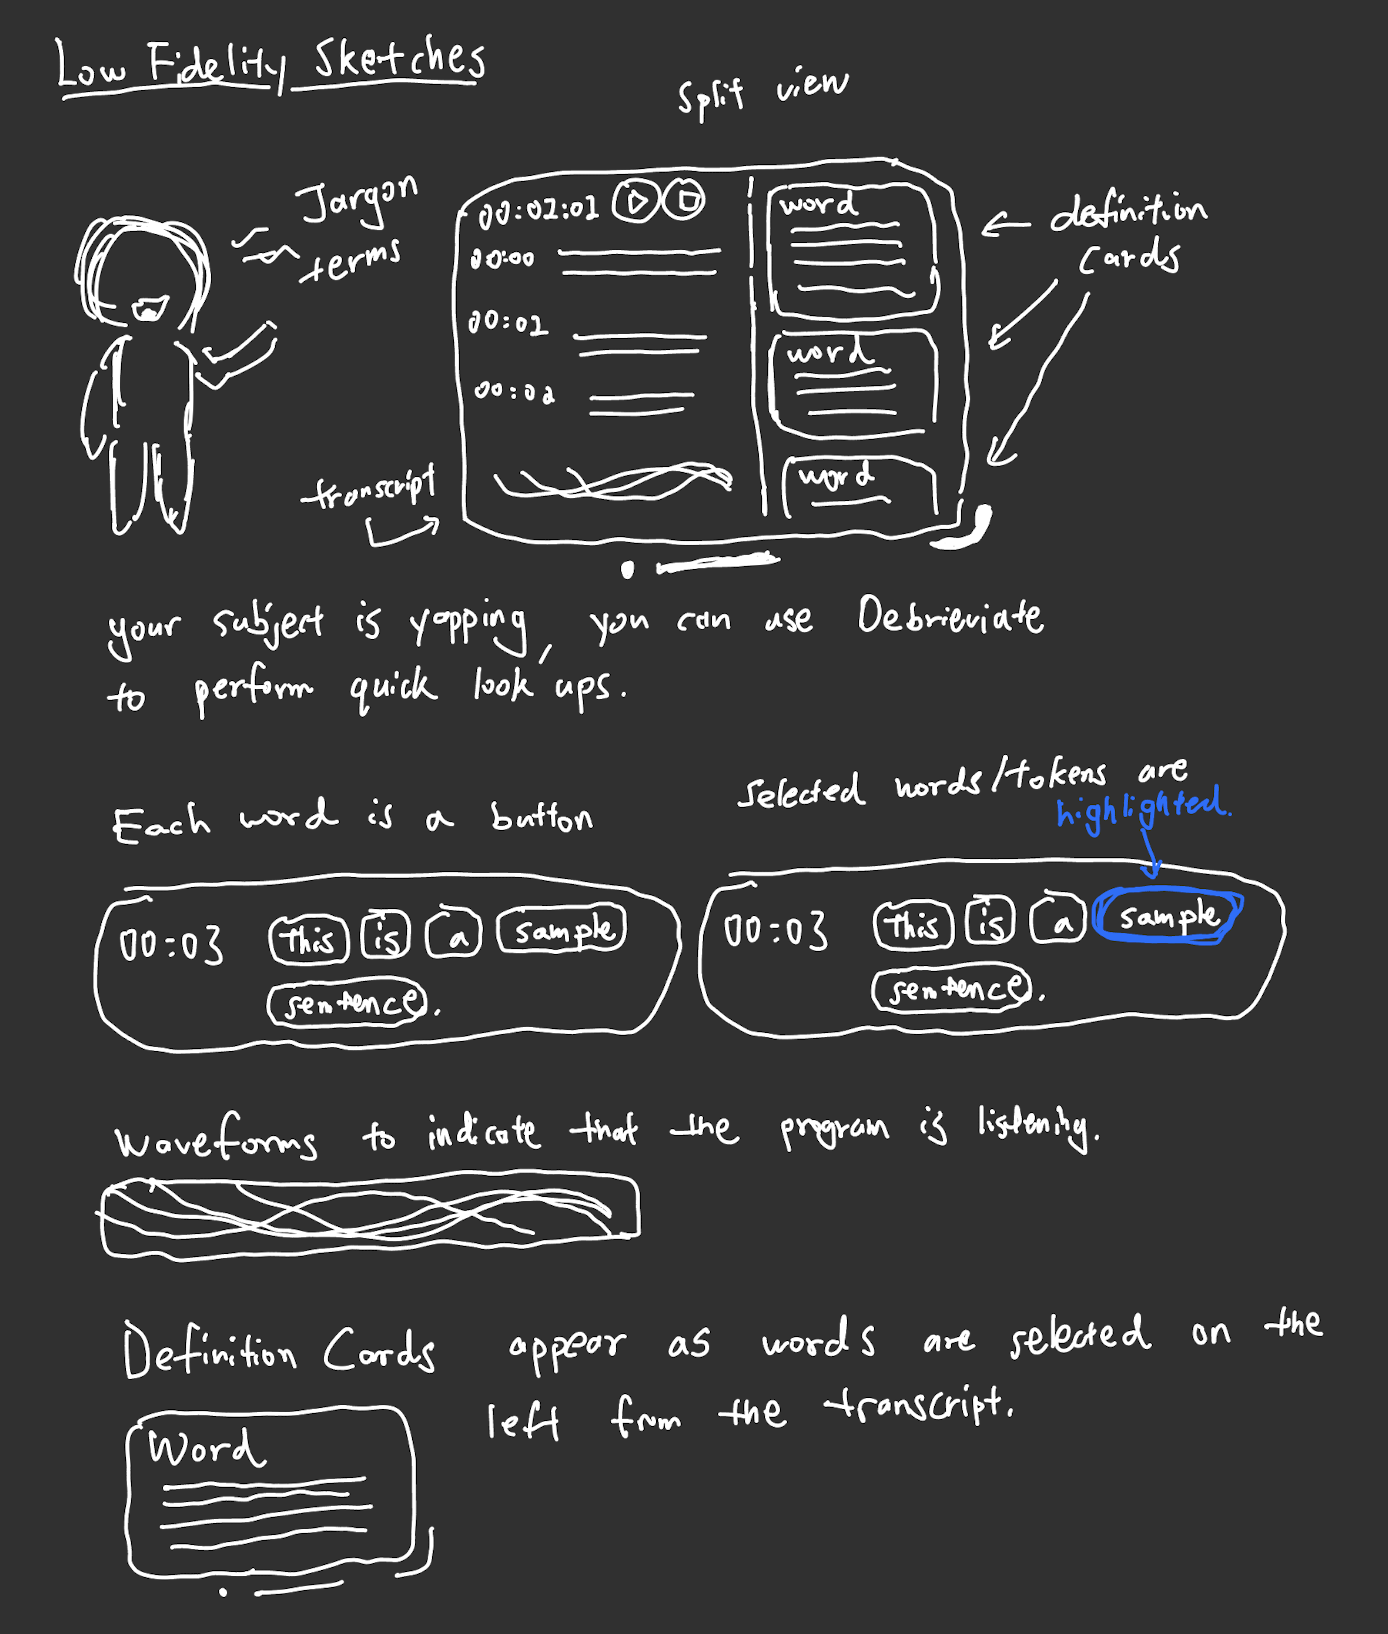 Low Fidelity Sketches
Split view
Jargon
terms
00:02:01
word
00:00
00:01
word
00:02
word
definition
cards
transcript
your subject is yapping, you can use Debrieviate
to perform quick look ups.
Each word is a button
Selected words/tokens are
highlighted.
00:03 This is a sample
sentence.
00:03 This is a sample
sentence.
Waveforms to indicate that the program is listening.
Definition Cards appear as words are selected on the
left from the transcript.
Word